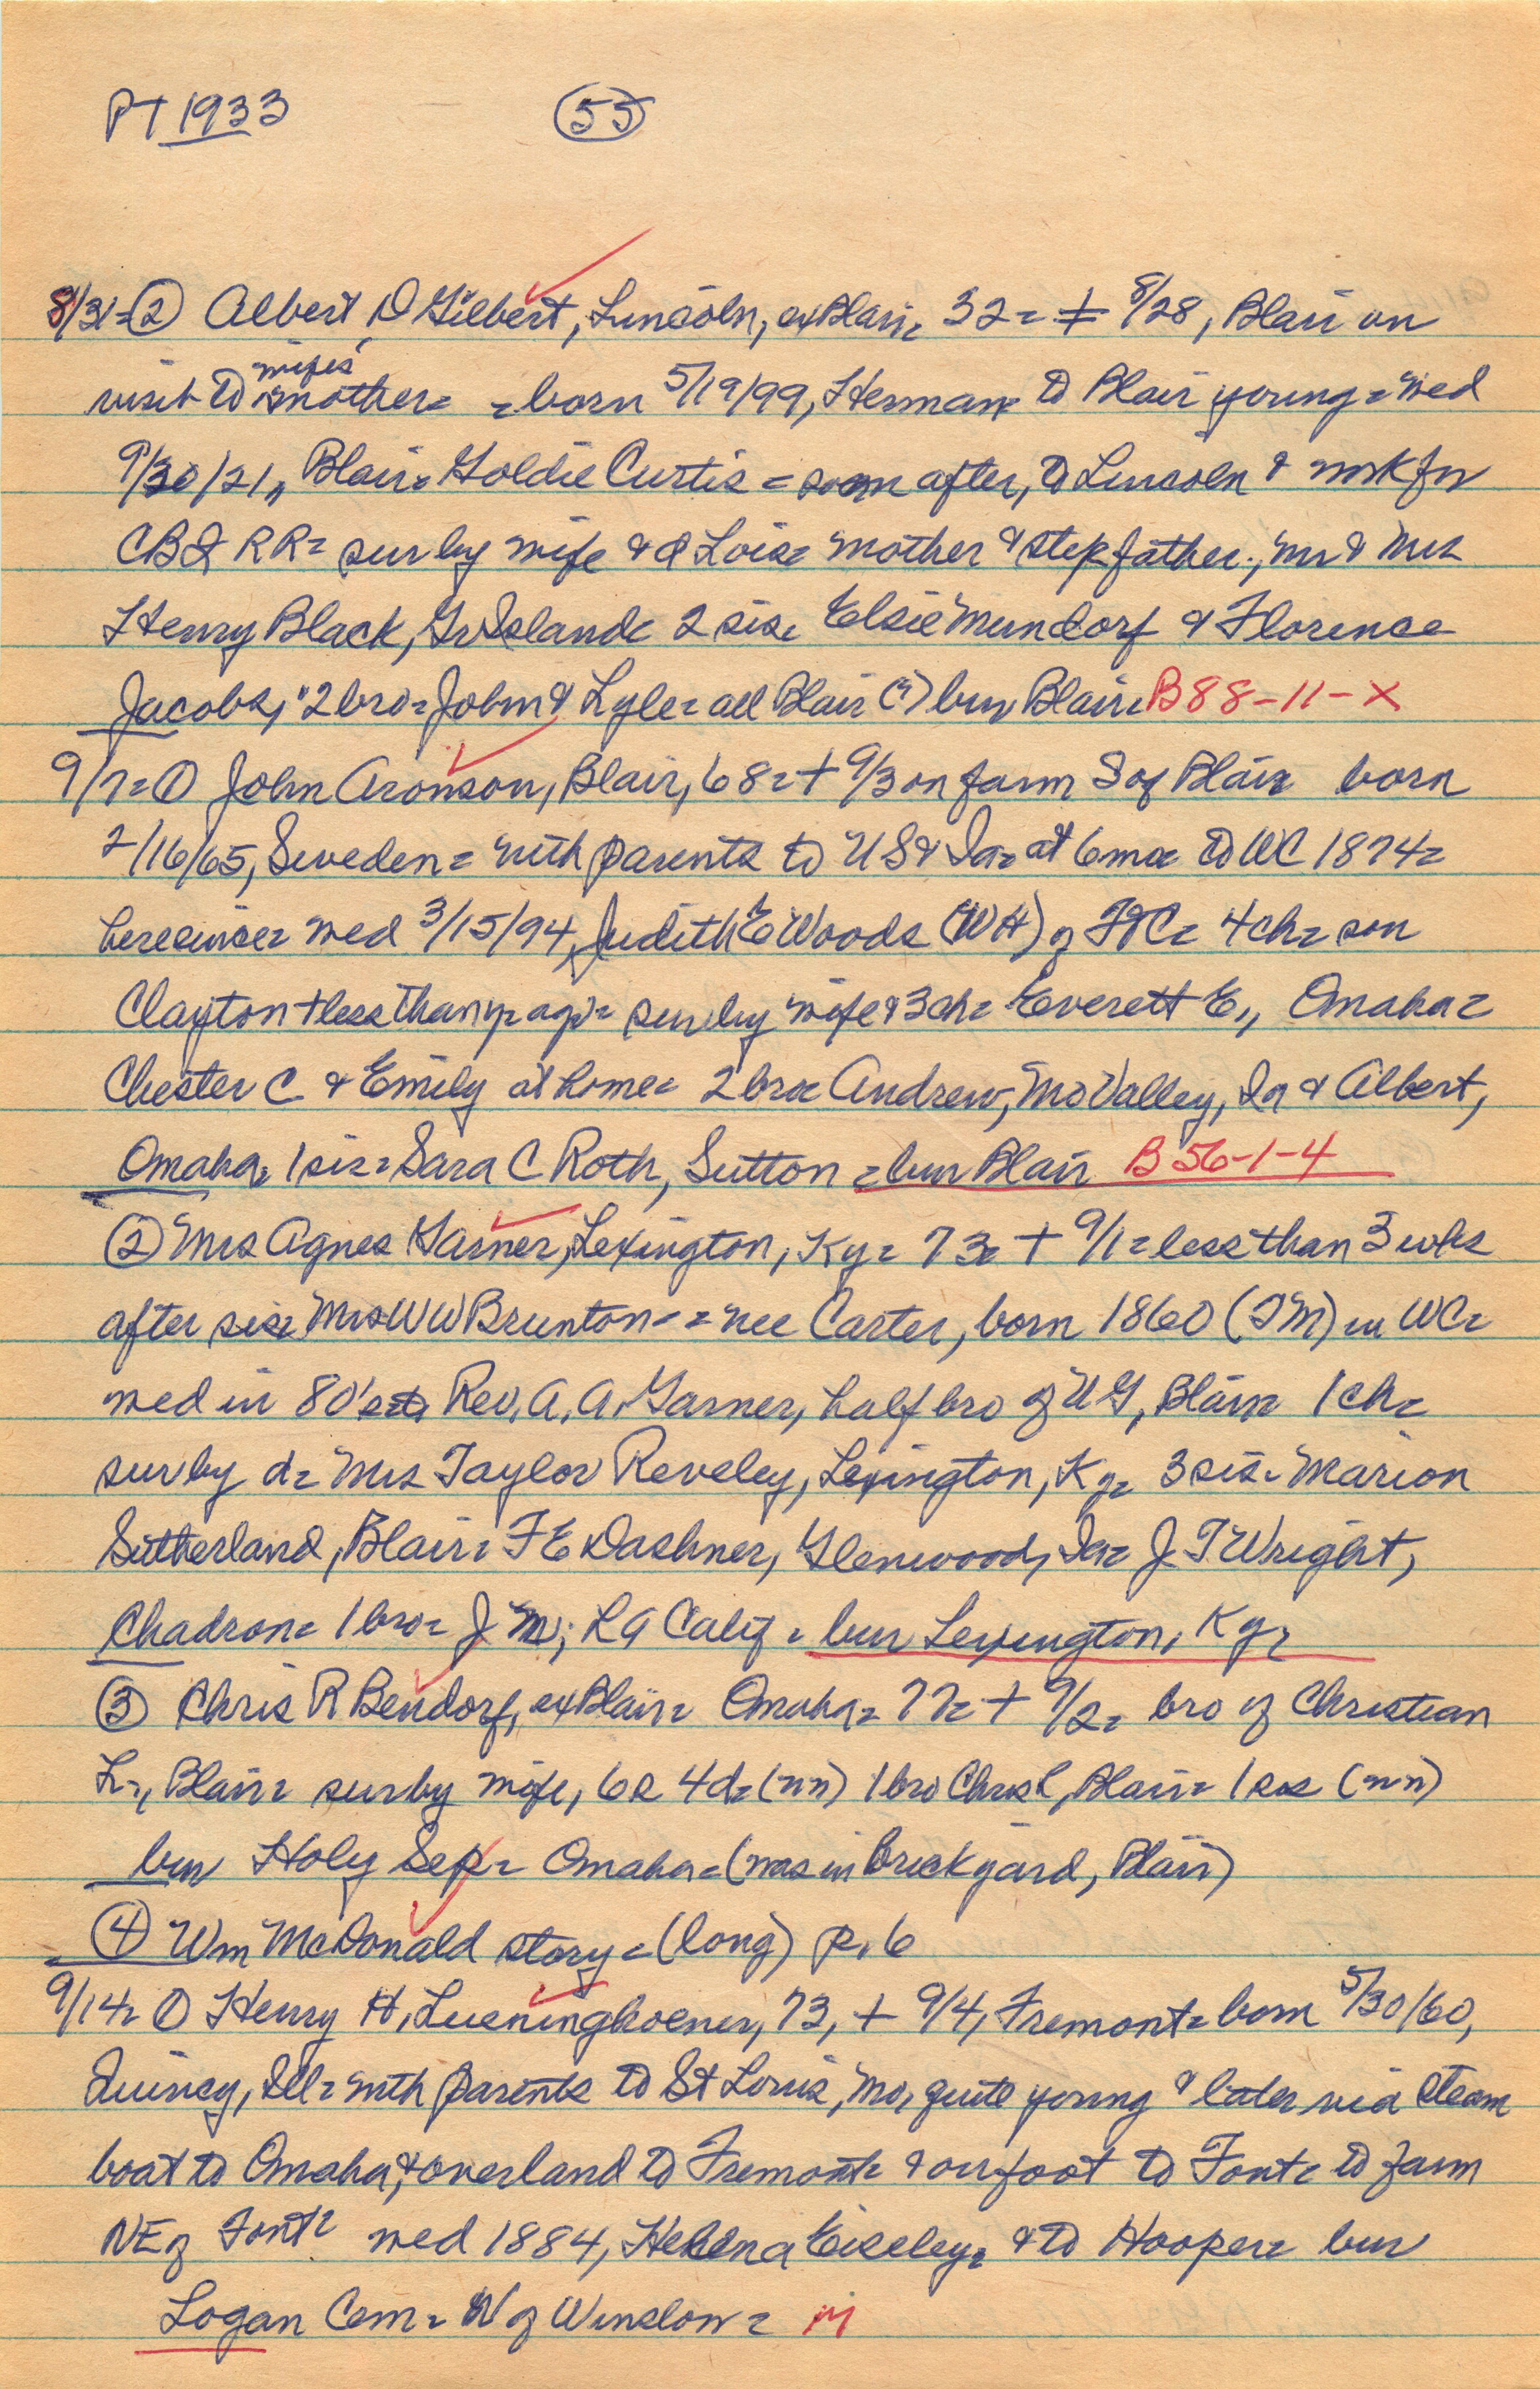 PT 1933 55
8/31= 2 Albert D Gilbert, Lincoln, exBlair= 32= ‡ 8/28, Blair on
visit to wifes' mother= =born 5/19/99, Herman= to Blair young= wed
9/30/21,, Blair= Goldie Curtis = soon after, to Lincoln & work for
CBQ RR= sur by wife & d Lois= mother & stepfather, Mr & Mrs
Henry Black, Gr Island= 2 sis= Elsie Mundorf & Florence
Jacobs, 2 bro= John & Lyle= all Blair (?) bur Blair= B 88-11-X
9/7= 1 John Aronson, Blair, 68= + 9/3 on farm S of Blair born
2/16/65, Sweden= with parents to US & Ia= at 6mo= to WC 1874=
here since= wed 3/15/94, Judith E Woods (WH) of FtC= 4ch= son
Clayton + less than yr ago= sur by wife & 3ch= Everett E,, Omaha=
Chester C & Emily at home= 2 bro= Andrew, Mo Valley, Ia & Albert,
Omaha= 1 sis= Sara C Roth, Sutton = bur Blair B 56-1-4
2 Mrs Agnes Garner, Lexington, Ky= 73= + 9/1= less than 3 wks
after sis= Mrs WW Brunton-= nee Carter, born 1860 (TM) in WC=
wed in 80's Rev. A. A. Garner, half bro of UG, Blair= 1ch=
sur by d= Mrs Taylor Reveley, Lexington, Ky= 3 sis= Marion
Sutherland, Blair= F E Dashner, Glenwood, Ia= J T Wright,
Chadron= 1 bro= J M, LA Calif = bur Lexington, Ky=
3 Chris R Bendorf, exBlair= Omaha= 77= + 9/2= bro of Christian
L=, Blair= sur by wife, 6s 4d= (nn) 1 bro Chris L, Blair= 1 sis (nn)
bur Holy Sep= Omaha= (was in brick yard, Blair)
4 Wm McDonald story = (long) p. 6
9/14= 1 Henry H, Lueninghoener, 73, + 9/4, Fremont= born 5/30/60,
Quincy, Ill= with parents to St Louis, Mo, quite young & later via steam
boat to Omaha, & overland to Fremont= & on foot to Font= to farm
NE of Font= wed 1884, Helena Eiseley= & to Hooper= bur
Logan Cem= N of Winslow=